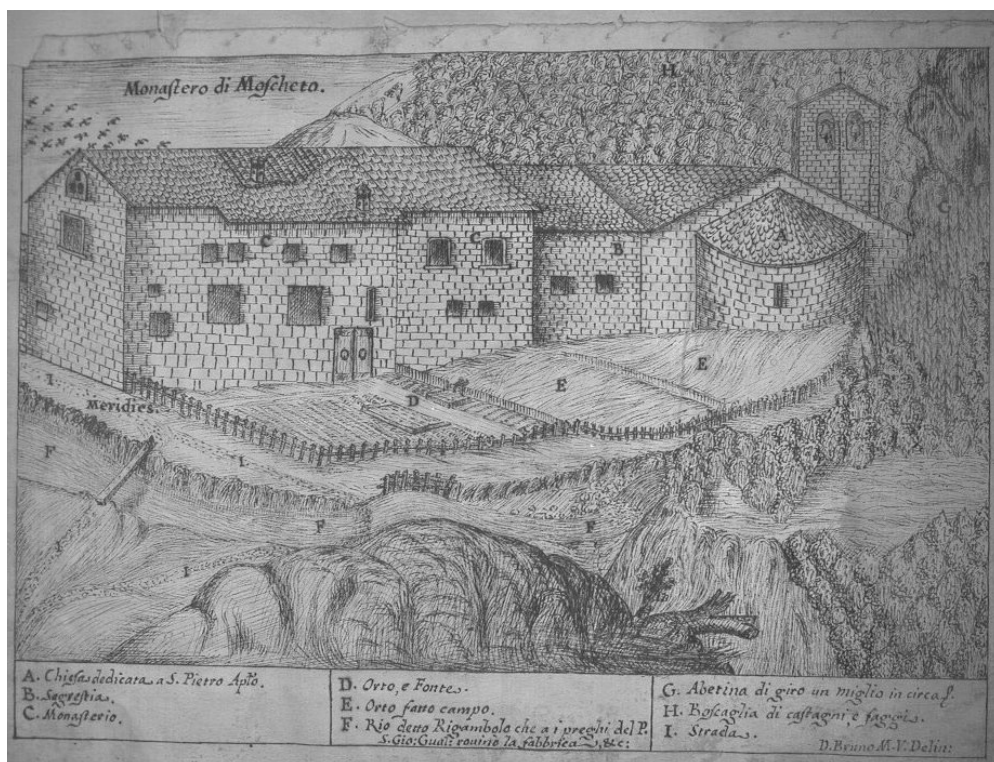 Monastero di Moscheto.
H
C
G
B
A
G
I
Meridies.
D
E
E
F
I
F
F
I
A. Chiesa dedicata a S. Pietro Apło.
B. Sagrestia.
C. Monasterio.
D. Orto, e Fonte.
E. Orto fatto campo.
F. Rio detto Rigambolo che a i preghi del P.
S. Gio: Gual: rovinò la fabbrica, &c:
G. Abetina di giro un miglio in circa
H. Boscaglia di castagni, e faggi.
I. Strada.
D. Bruno M. V. Delin: